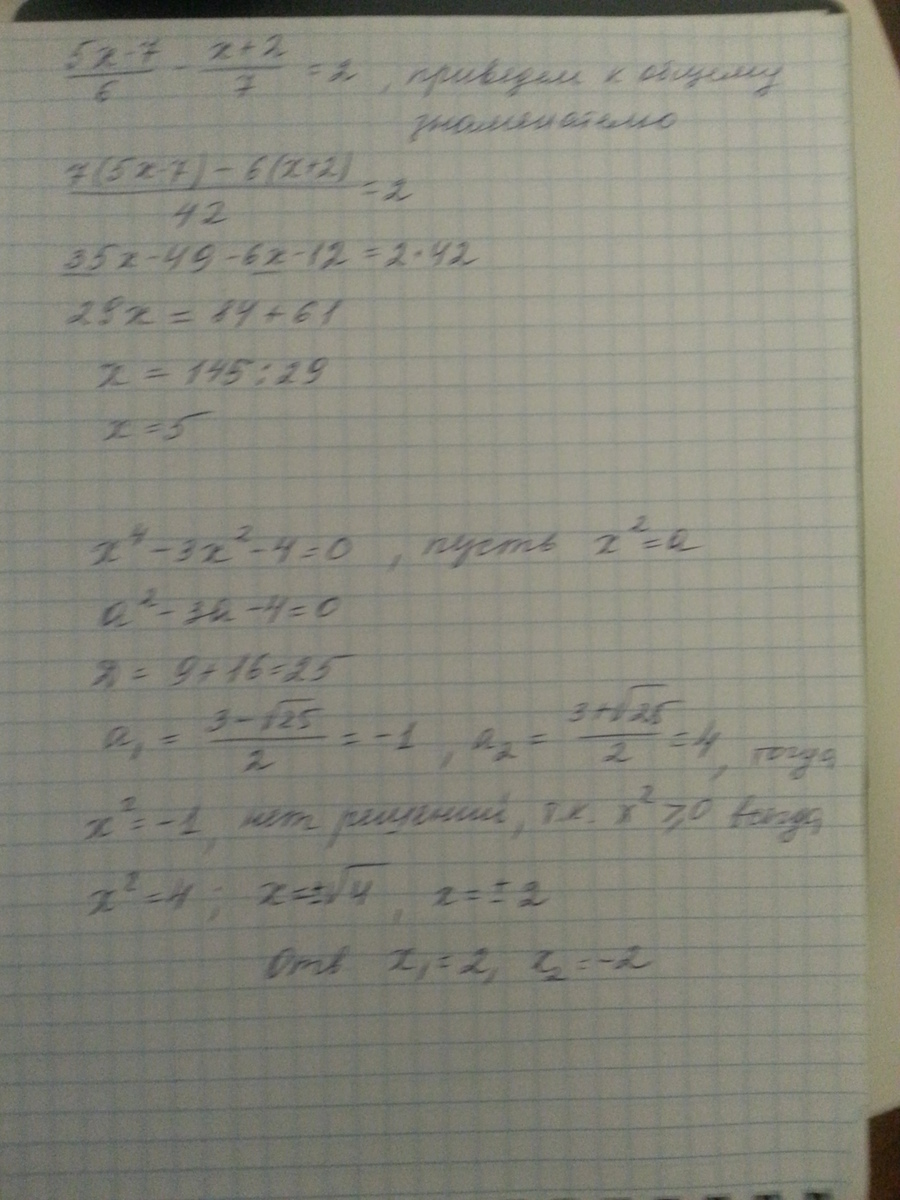 (5x-7)/6 - (x+2)/7 = 2, приведем к общему
знаменателю
(7(5x-7) - 6(x+2))/42 = 2
35x-49-6x-12=2·42
29x = 84+61
x = 145:29
x=5
x⁴-3x²-4=0, пусть x²=a
a²-3a-4=0
D = 9+16=25
a₁ = (3-√25)/2 = -1, a₂ = (3+√25)/2 = 4, тогда
x²=-1, нет решений, т.к. x²≥0 всегда
x²=4; x=±√4, x=±2
Отв x₁=2, x₂=-2